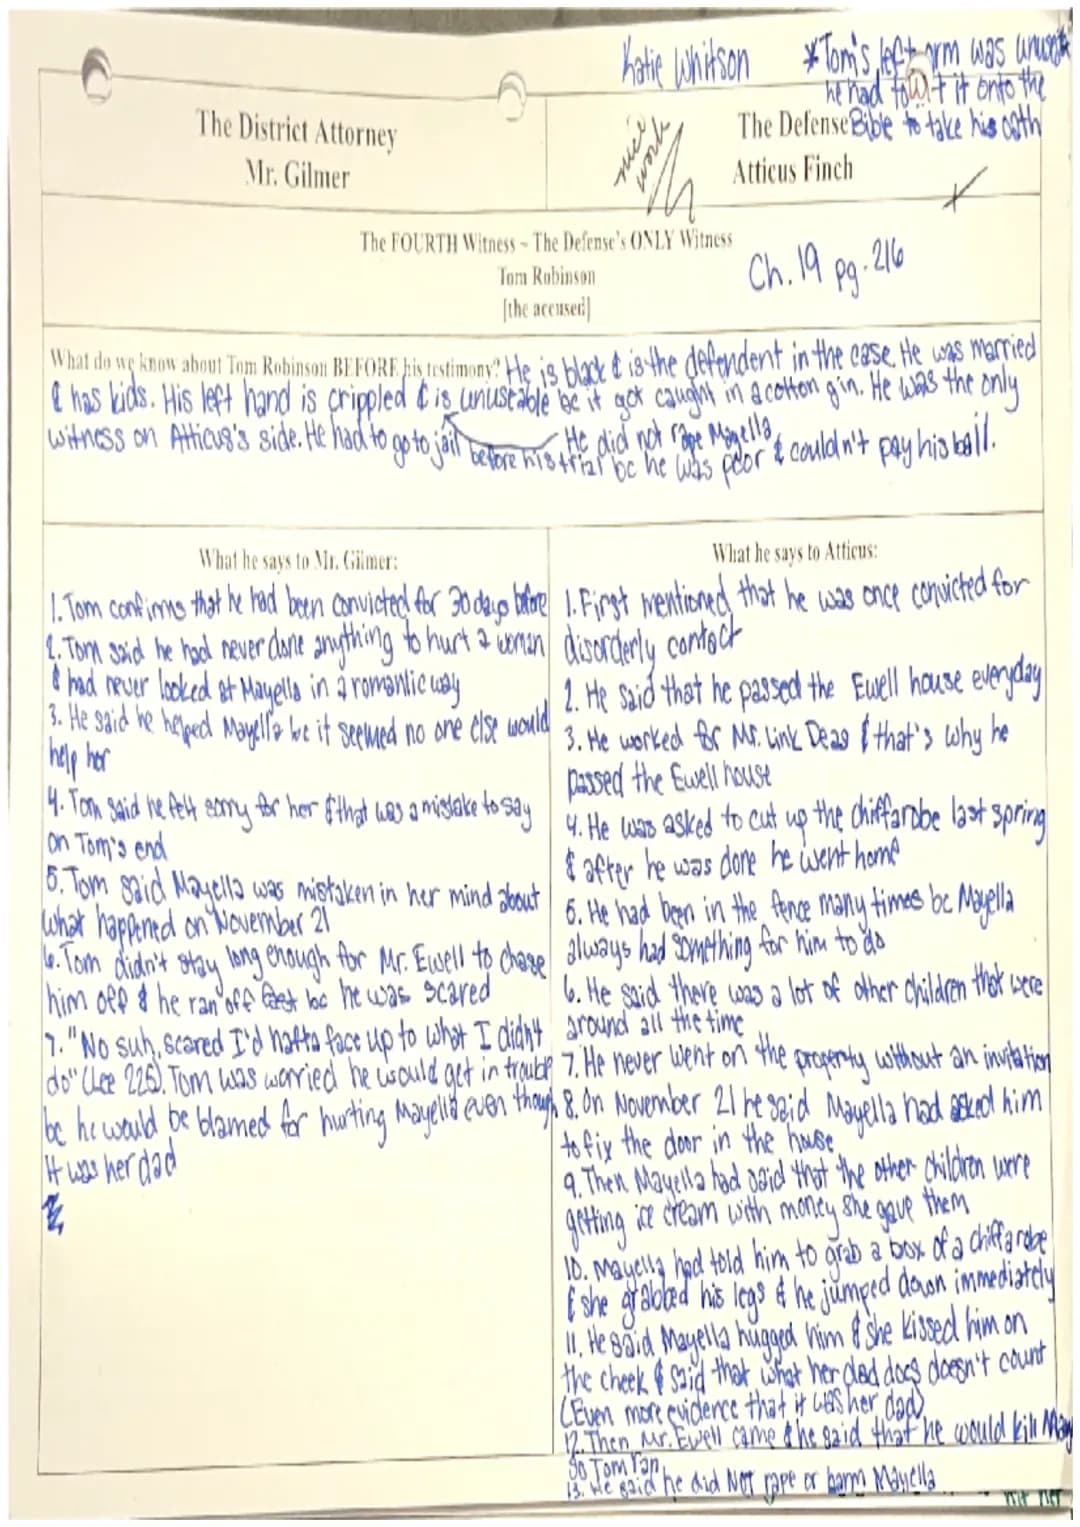 Katie Whitson
*Tom's left arm was
he had to it onto the
Bible to take his oath
The District Attorney
Mr. Gilmer
nice
work
The Defense
Atticus Finch
The FOURTH Witness ~ The Defense's ONLY Witness
Tom Robinson
[the accused]
Ch. 19 pg. 216
What do we know about Tom Robinson BEFORE his testimony? He is black & is the defendent in the case. He was married
& has kids. His left hand is crippled & is unuseable bc it got caught in a cotton gin. He was the only
witness on Atticus's side. He had to go to jail He did not rape Mayella
before his trial bc he was poor & couldn't pay his bail.
What he says to Mr. Gilmer:
1. Tom confirms that he had been convicted for 30 days before
2. Tom said he had never done anything to hurt a woman
& had never looked at Mayella in a romantic way
3. He said he helped Mayella bc it seemed no one else would
help her
4. Tom said he felt sorry for her & that was a mistake to say
on Tom's end
5. Tom said Mayella was mistaken in her mind about
what happened on November 21
6. Tom didn't stay long enough for Mr. Ewell to chase
him off & he ran off bc he was scared
7. "No suh, scared I'd hafta face up to what I didn't
do" (Lee 225). Tom was worried he would get in trouble
bc he would be blamed for hurting Mayella even though
it was her dad
What he says to Atticus:
1. First mentioned that he was once convicted for
disorderly contact
2. He said that he passed the Ewell house everyday
3. He worked for Mr. Link Deas & that's why he
passed the Ewell house
4. He was asked to cut up the chiffarobe last spring
& after he was done he went home
5. He had been in the fence many times bc Mayella
always had something for him to do
6. He said there was a lot of other children that were
around all the time
7. He never went on the property without an invitation
8. On November 21 he said Mayella had asked him
to fix the door in the house
9. Then Mayella had said that the other children were
getting ice cream with money she gave them
10. Mayella had told him to grab a box of a chiffarobe
& she grabbed his legs & he jumped down immediately
11. He said Mayella hugged him & she kissed him on
the cheek & said that what her dad does doesn't count
(Even more evidence that it was her dad)
12. Then Mr. Ewell came & he said that he would kill May
So Tom ran
13. He said he did NOT rape or harm Mayella